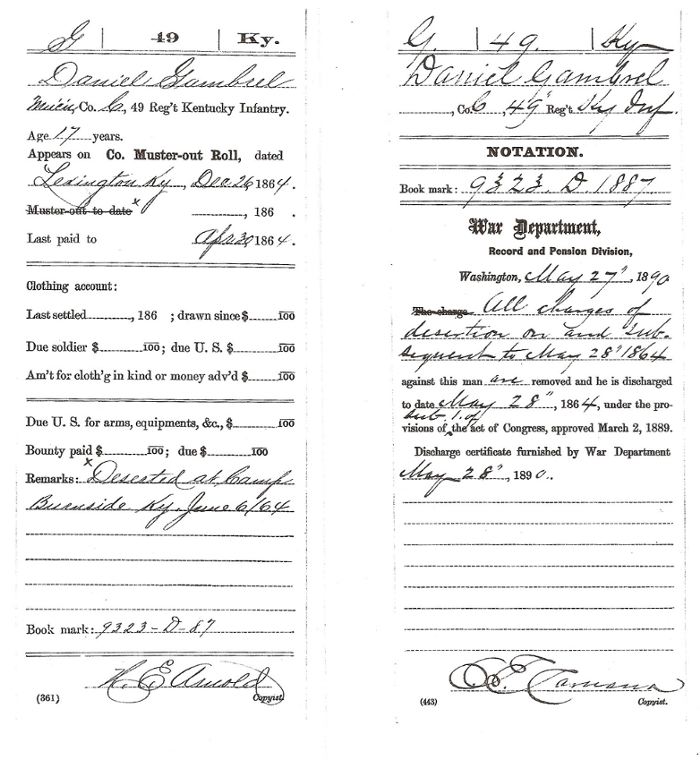 G | 49 | Ky.
Daniel Gambrel
Co. C, 49 Reg't Kentucky Infantry.
Age 17 years.
Appears on Co. Muster-out Roll, dated
Lexington Ky, Dec. 26 1864.
Muster-out to date x , 186 .
Last paid to Apr 30 1864.
Clothing account:
Last settled , 186 ; drawn since $ 100
Due soldier $ 100; due U. S. $ 100
Am't for cloth'g in kind or money adv'd $ 100
Due U. S. for arms, equipments, &c., $ 100
Bounty paid $ 100; due $ 100
x
Remarks: Deserted at Camp
Burnside Ky. June 6/64
Book mark: 9323-D-87
H. E. Arnold
(361) Copyist.
G. | 49. | Ky
Daniel Gambrel
, Co. C, 49" Reg't Ky Inf.
NOTATION.
Book mark: 9323. D. 1887
War Department,
Record and Pension Division,
Washington, May 27", 1890
The charge All charges of
desertion on and sub-
sequent to May 28" 1864
against this man are removed and he is discharged
to date May 28", 1864, under the pro-
sub. 1. of
visions of the act of Congress, approved March 2, 1889.
Discharge certificate furnished by War Department
May 28", 1890.
(443) Copyist.